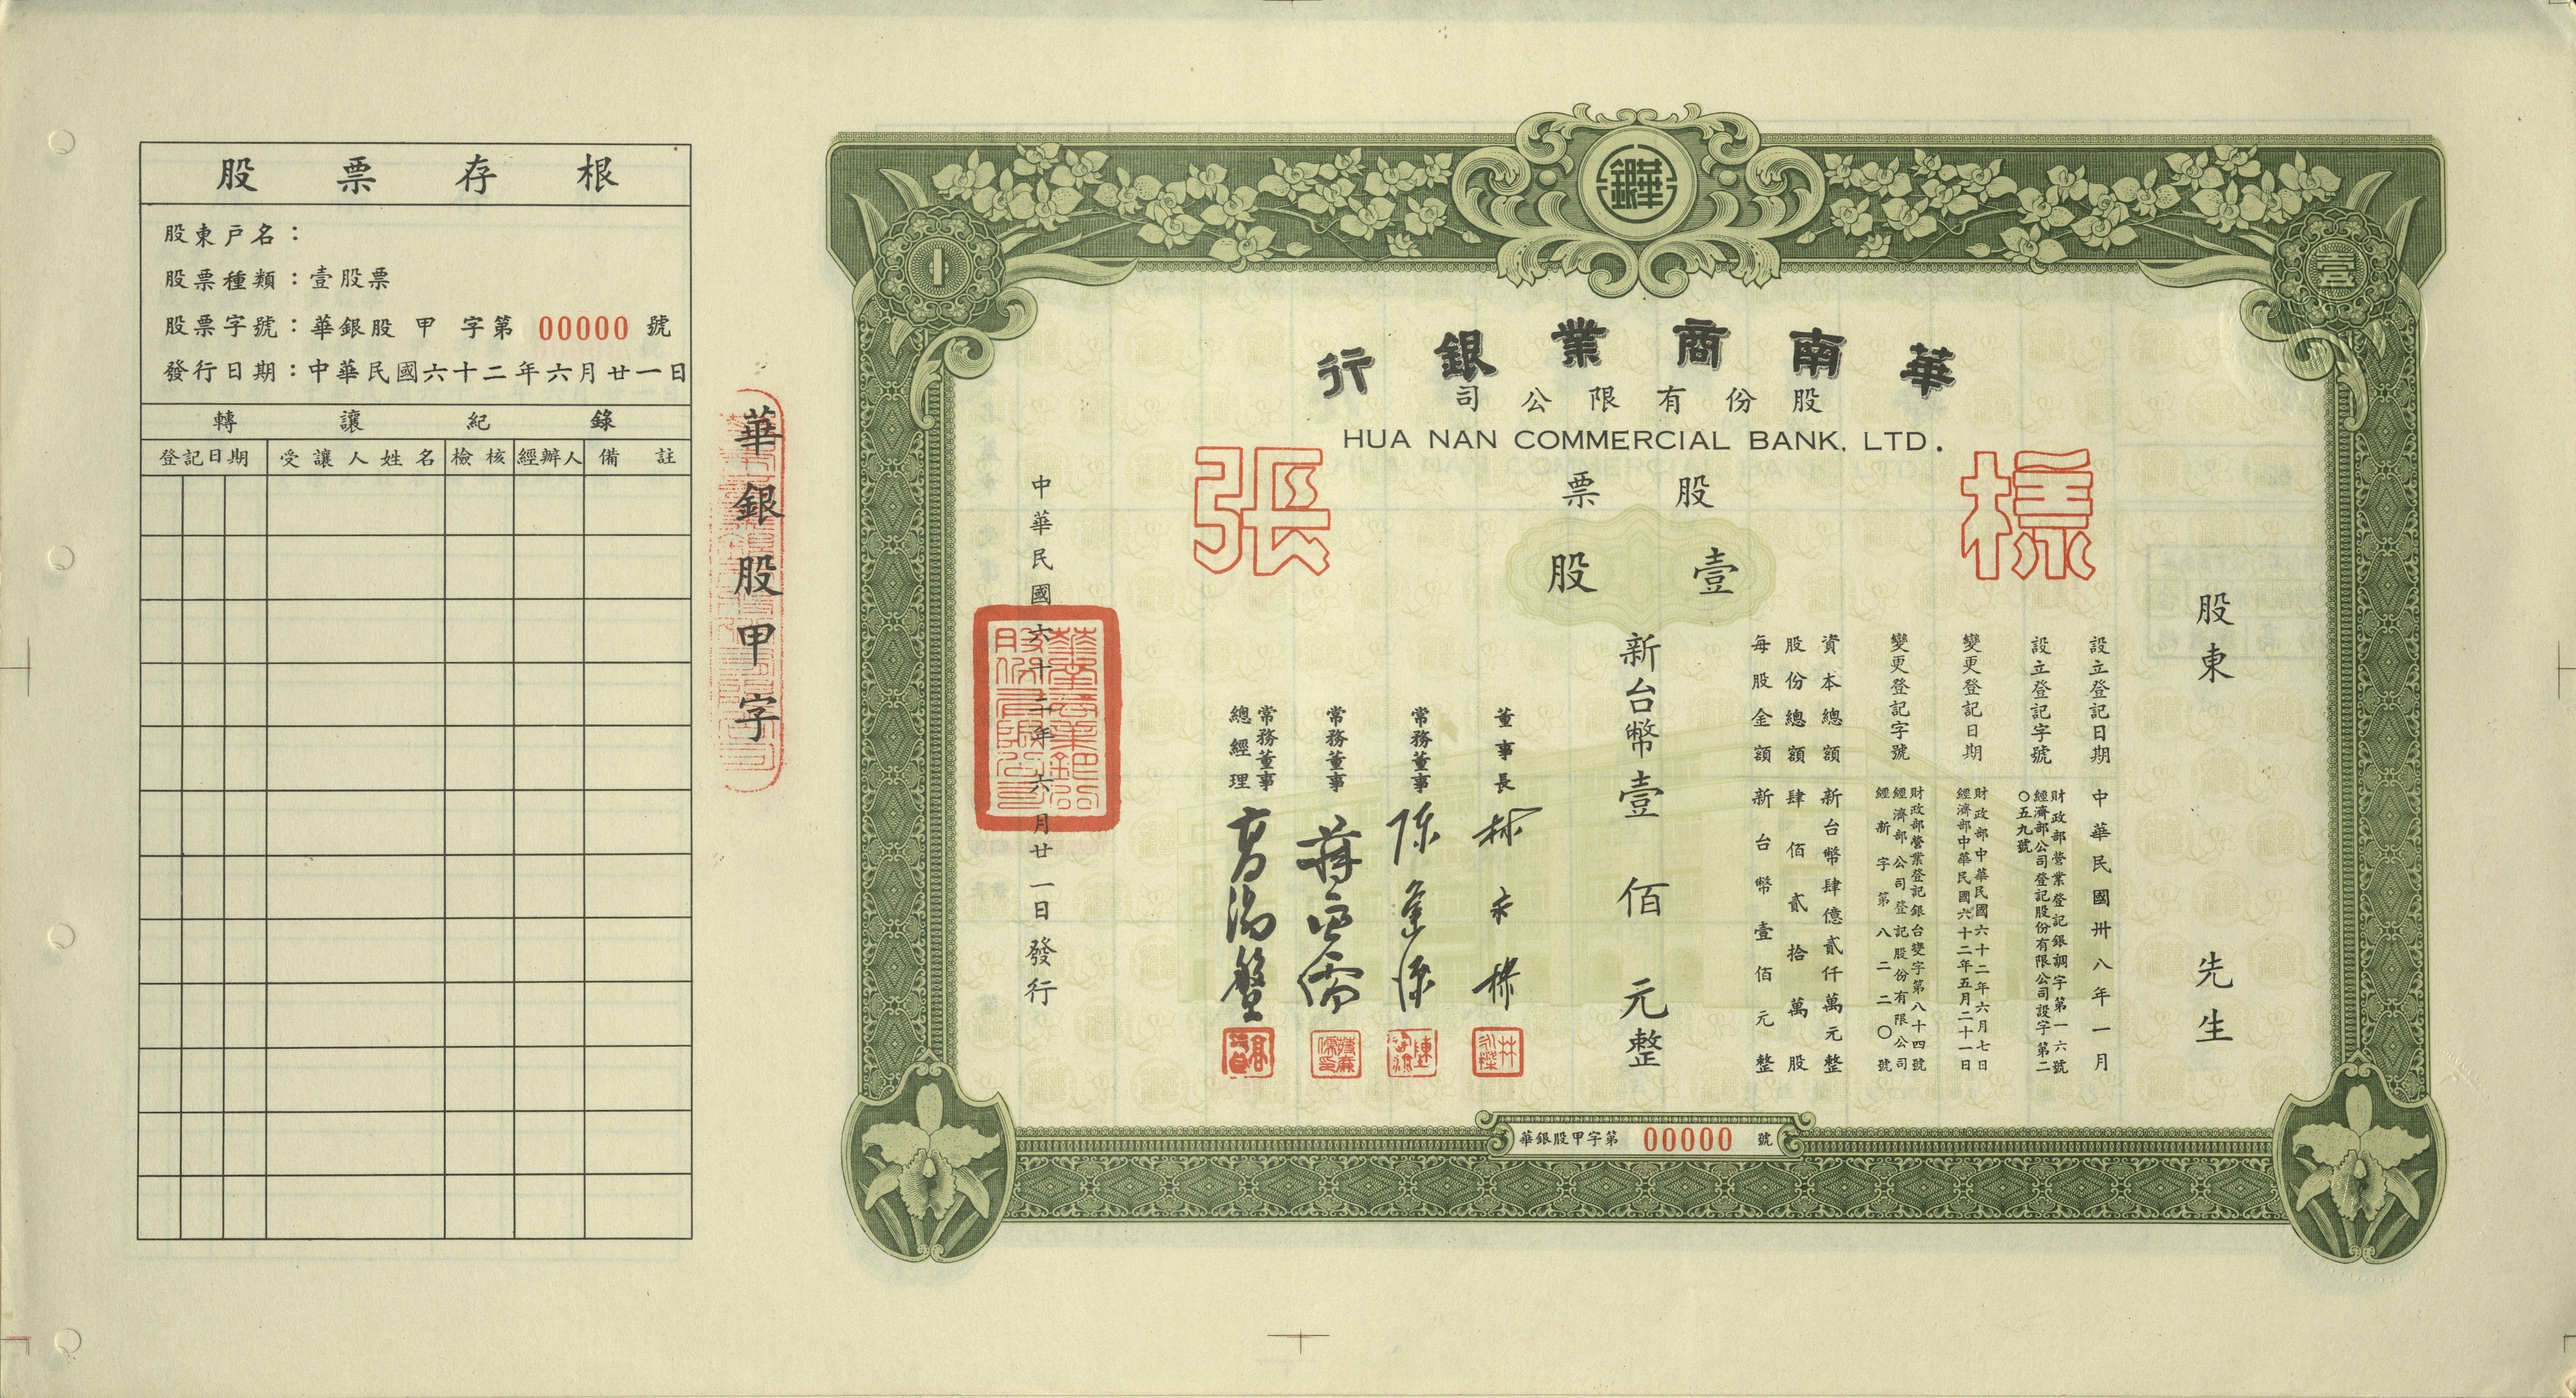 股票存根
股東戶名：
股票種類：壹股票
股票字號：華銀股 甲 字第 00000 號
發行日期：中華民國六十二年六月廿一日
轉讓紀錄
登記日期 受讓人姓名 檢核 經辦人 備註
華銀股甲字
壹
華南商業銀行
股份有限公司
HUA NAN COMMERCIAL BANK, LTD.
股票
樣張
壹股
股東 先生
設立登記日期 中華民國卅八年一月
設立登記字號 財政部營業登記銀調字第一六號
經濟部公司登記股份有限公司設字第二
〇五九號
變更登記日期 財政部中華民國六十二年六月七日
經濟部中華民國六十二年五月二十一日
變更登記字號 財政部營業登記銀台變字第八十四號
經濟部公司登記股份有限公司
經新字第八二二〇號
資本總額 新台幣肆億貳仟萬元整
股份總額 肆佰貳拾萬股
每股金額 新台幣壹佰元整
新台幣壹佰元整
董事長
常務董事
常務董事
常務董事
總經理
中華民國六十二年六月廿一日發行
華銀股甲字第 00000 號